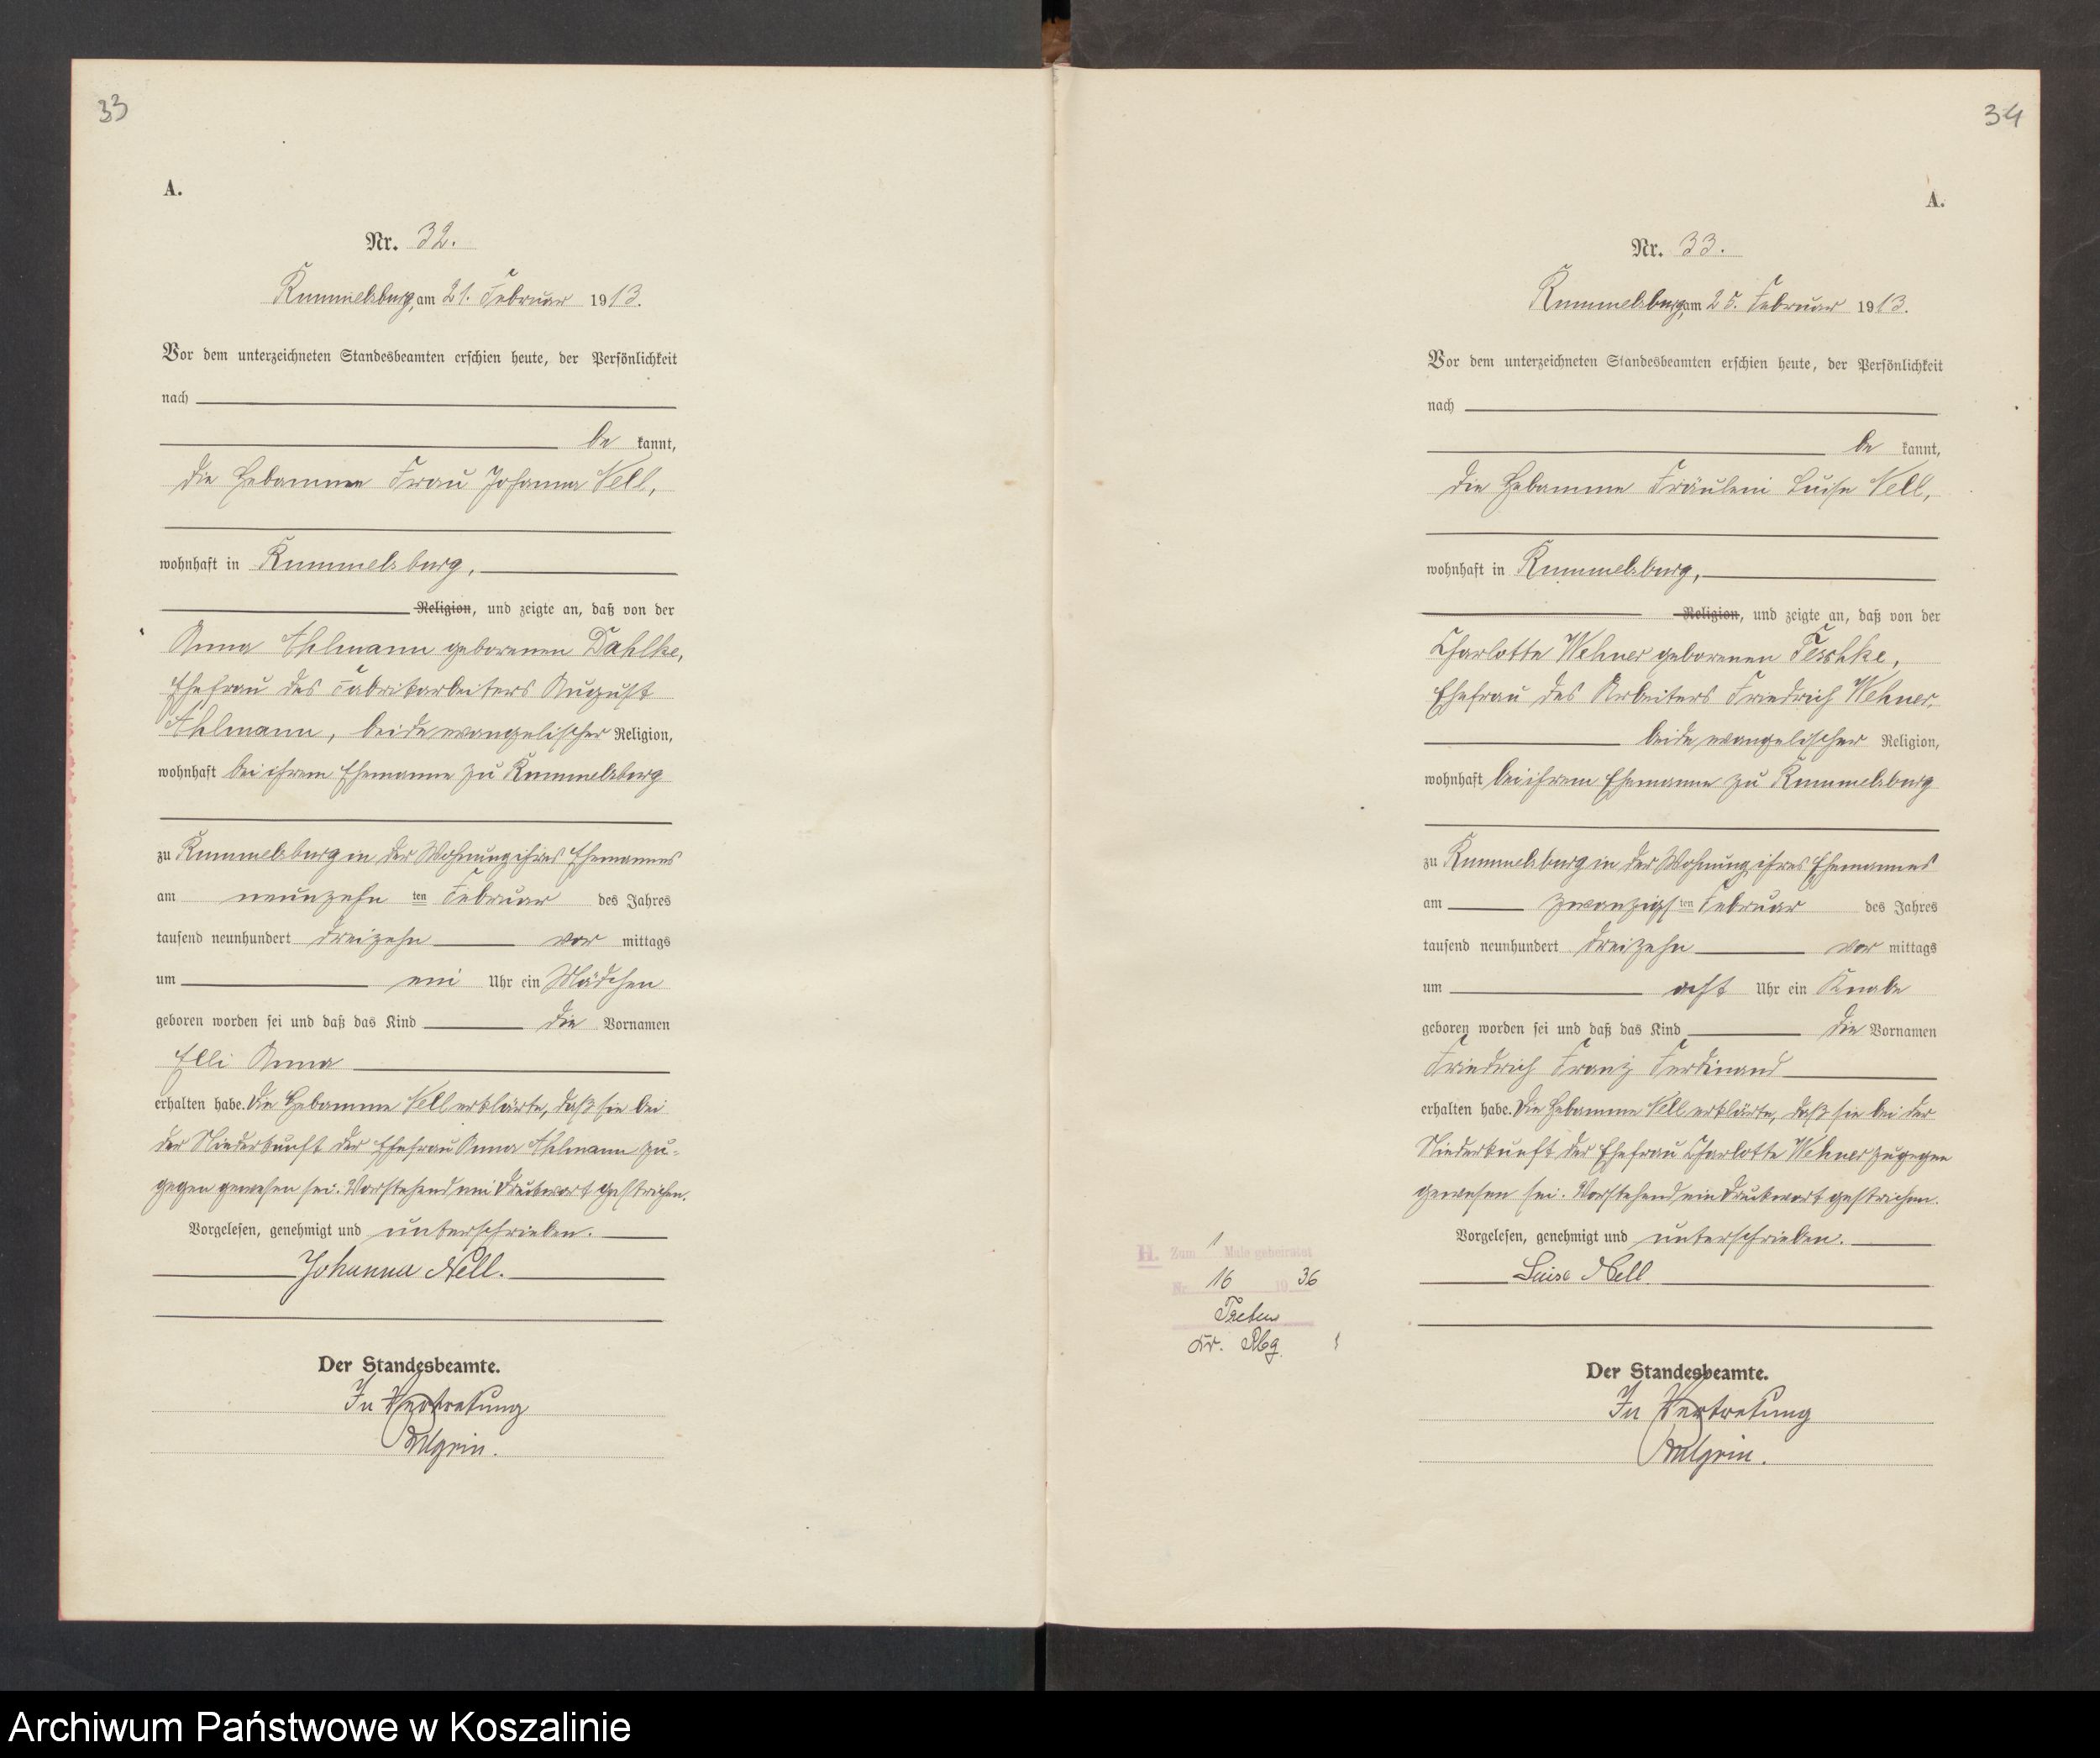 33
A.
Nr. 32.
Rummelsburg, am 21. Februar 1913.
Vor dem unterzeichneten Standesbeamten erschien heute, der Persönlichkeit
nach
be kannt,
die Hebamme Frau Johanna Nell,
wohnhaft in Rummelsburg,
Religion, und zeigte an, daß von der
Anna Ahlmann geborenen Dahlke,
Ehefrau des Fabrikarbeiters August
Ahlmann, beide evangelischer Religion,
wohnhaft bei ihrem Ehemanne zu Rummelsburg
zu Rummelsburg in der Wohnung ihres Ehemannes
am neunzehn ten Februar des Jahres
tausend neunhundert dreizehn vor mittags
um ein Uhr ein Mädchen
geboren worden sei und daß das Kind die Vornamen
Elli Anna
erhalten habe. Die Hebamme Nell erklärte, daß sie bei
der Niederkunft der Ehefrau Anna Ahlmann zu-
gegen gewesen sei. Vorstehend ein Druckwort gestrichen.
Vorgelesen, genehmigt und unterschrieben.
Johanna Nell.
Der Standesbeamte.
In Vertretung
34
A.
Nr. 33.
Rummelsburg, am 25. Februar 1913.
Vor dem unterzeichneten Standesbeamten erschien heute, der Persönlichkeit
nach
be kannt,
die Hebamme Fräulein Luise Nell,
wohnhaft in Rummelsburg,
Religion, und zeigte an, daß von der
Charlotte Wehner geborenen Teschke,
Ehefrau des Arbeiters Friedrich Wehner,
beide evangelischer Religion,
wohnhaft bei ihrem Ehemanne zu Rummelsburg
zu Rummelsburg in der Wohnung ihres Ehemannes
am zwanzigsten Februar des Jahres
tausend neunhundert dreizehn vor mittags
um acht Uhr ein Knabe
geboren worden sei und daß das Kind die Vornamen
Friedrich Franz Ferdinand
erhalten habe. Die Hebamme Nell erklärte, daß sie bei der
Niederkunft der Ehefrau Charlotte Wehner zugegen
gewesen sei. Vorstehend ein Druckwort gestrichen.
Vorgelesen, genehmigt und unterschrieben.
Luise Nell
Der Standesbeamte.
In Vertretung
H. Zum 1 Male geheiratet
Nr. 16 19 36
Treten
Kr. Rbg.
Archiwum Państwowe w Koszalinie